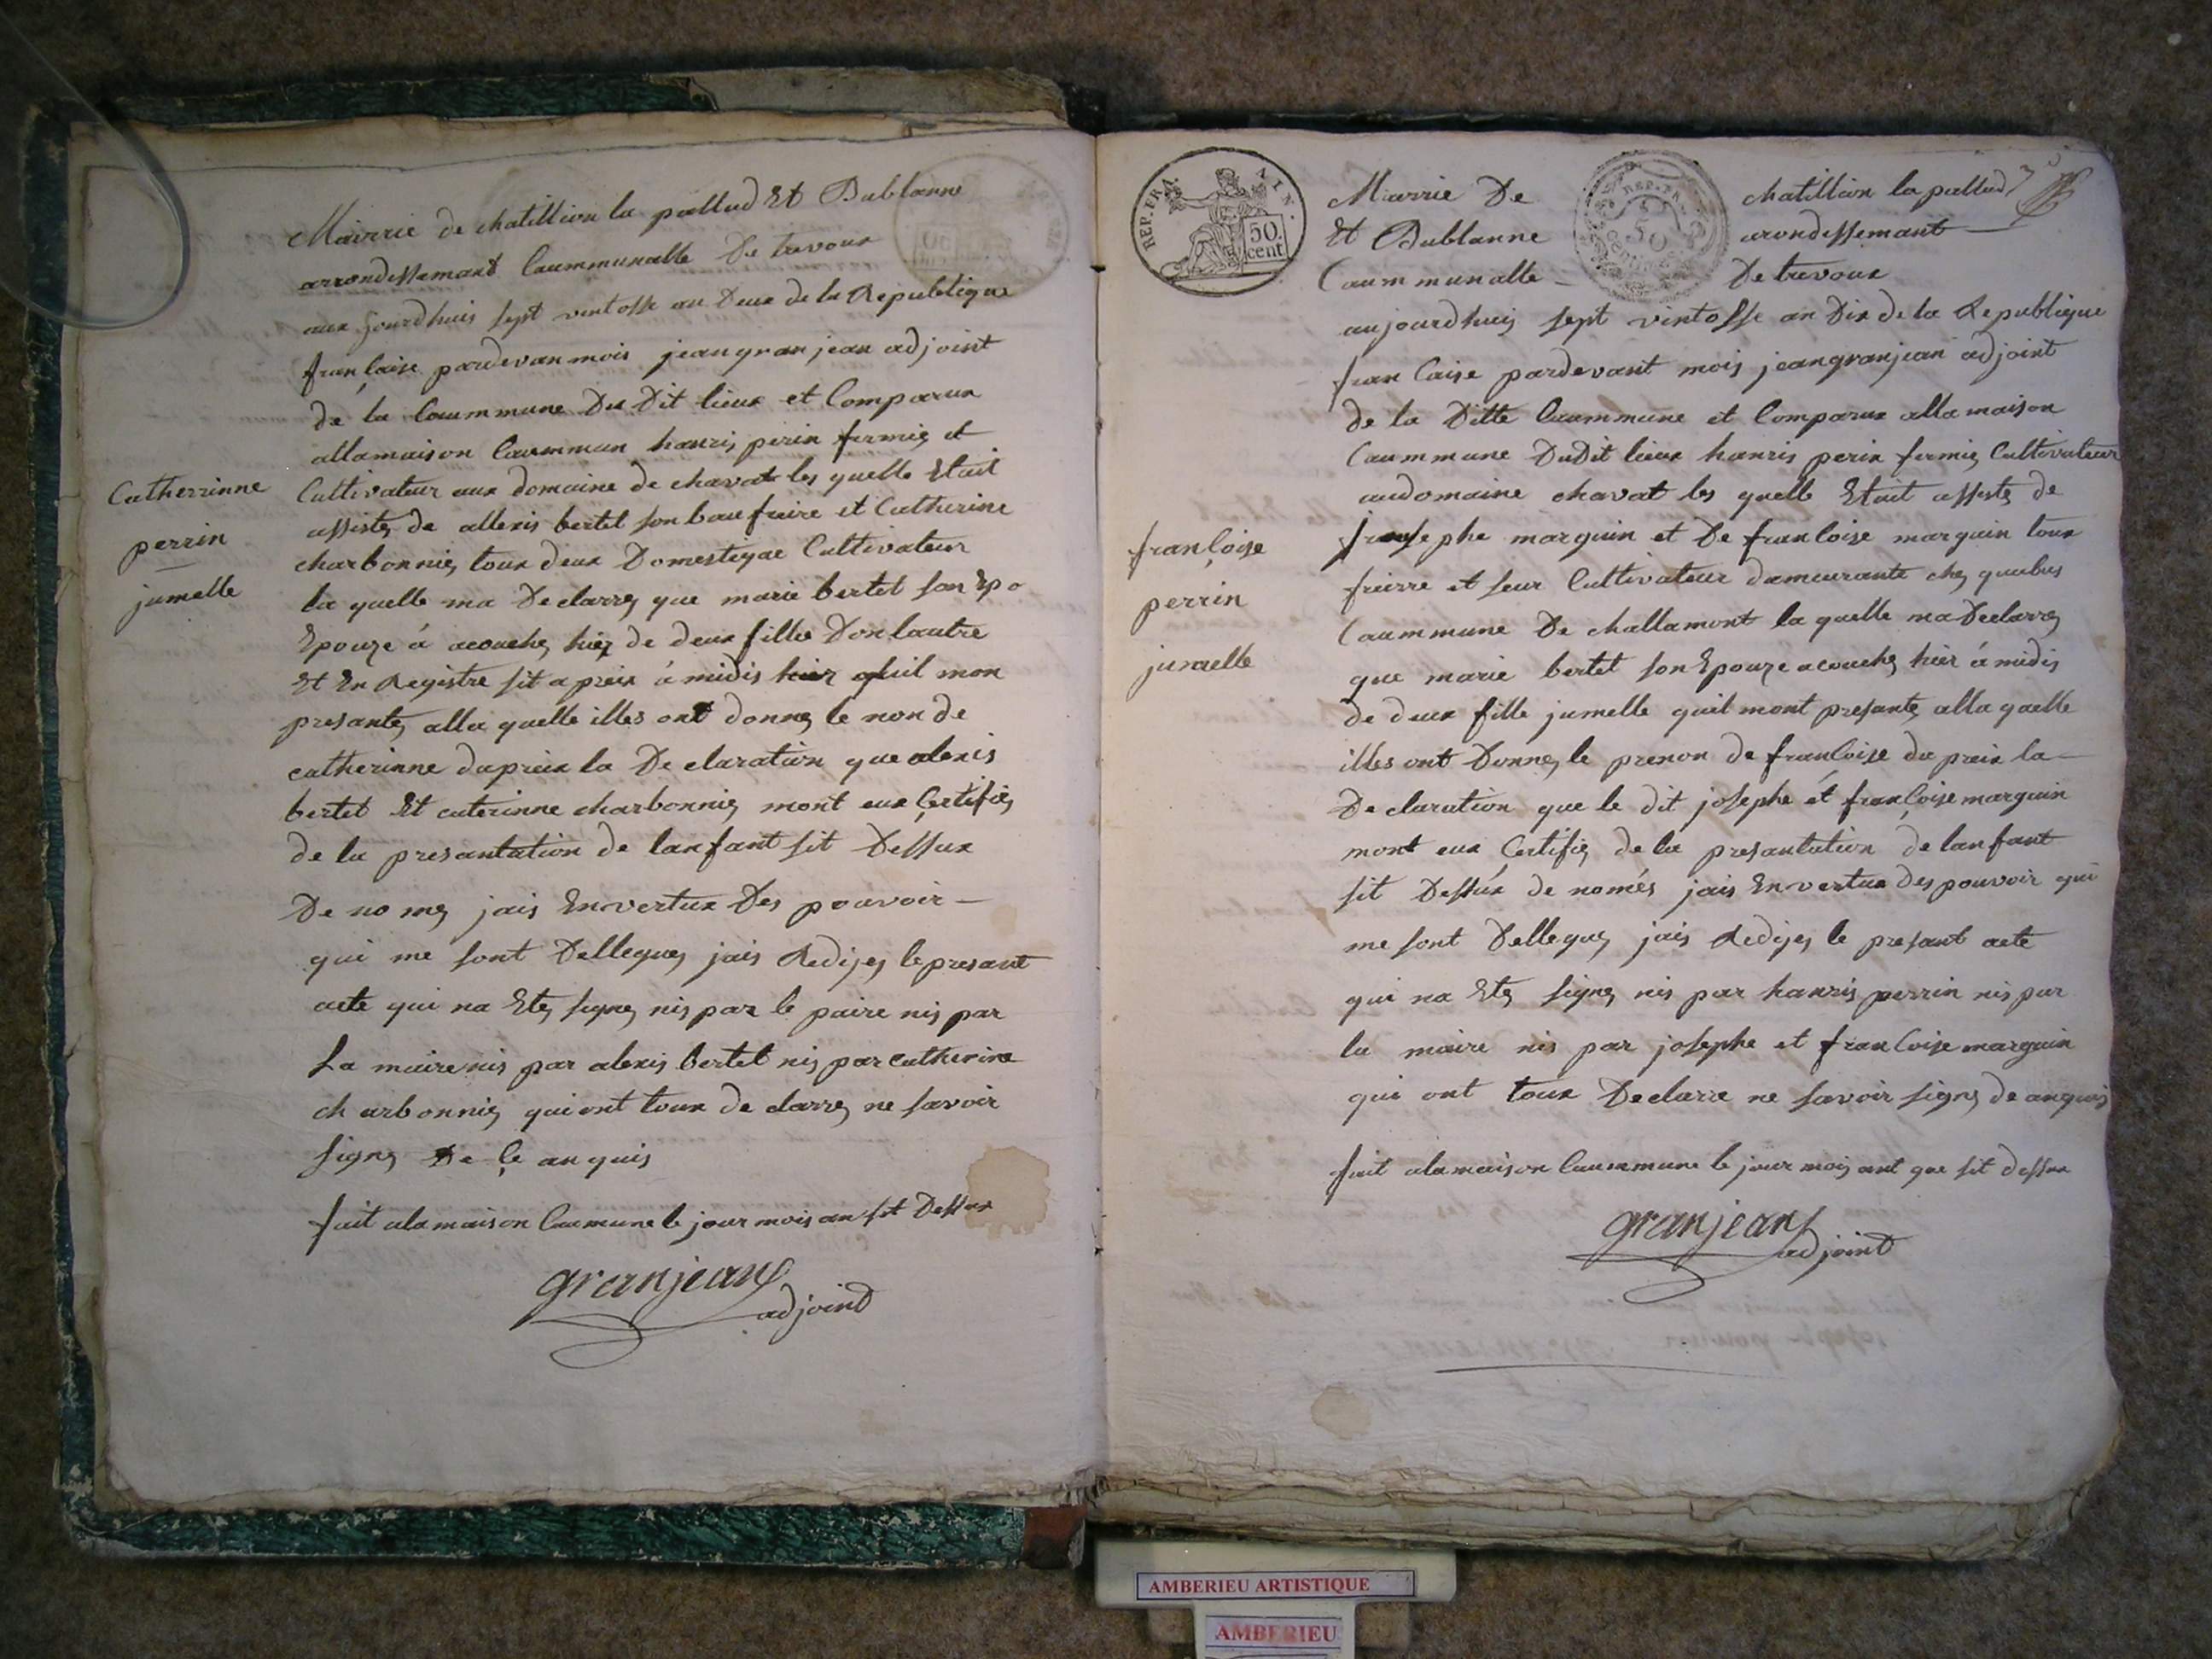 Mairrie de chatillion la pallud Et Bublanne
arrondissemant Caummunalle De trevoux
aux Jourdhuis sept vintosse an Deux de la Republique
française pardevan mois jean granjean adjoint
de la Caummune Du Dit lieux et Comparux
allamaison Caummun hanris perin fermié et
Cultivateur aux domaine de chavat les quelle Etait
assisté de allexis bertet son baufraire et Catherine
charbonnié toux deux Domestique Cultivateur
la quelle ma Declarré que marie bertet son Epo
Epouze á acouché hier de deux filles Don lautre
Et En Registre sit apreix á midis hier quil mon
presanté alla quelle illes ont donné le non de
catherinne dupreix la Declaration que alexis
bertet Et caterinne charbonnié mont eux Çertifié
de la presantation de lanfant sit Dessux
De nomé jais En vertux Des pouvoir —
qui me sont Dellegué jais Redijé le presant
acte qui na Eté signé nis par le paire nis par
La maire nis par alexis bertet nis par catherine
charbonnié qui ont toux declarré ne savoir
signé De Çe anquis
fait ala maison Caumune le jour mois an sit Dessux
granjean
adjoint
Catherrinne
perrin
jumelle
REP. FRA. AIN.
50.
cent
REP. FRA.
50
Mairrie De chatillion la pallud
Et Bublanne arondissemant —
Caummunalle — De trevoux
aujourdhuis sept vintosse an Dix de la Republique
franCaise pardevant mois jean granjean adjoint
de la Ditte Caummune et Comparux alla maison
Caummune DuDit lieux hanris perin fermié Cultivateur
audomaine chavat les quelle Etait assisté de
josephe marguin et De franCoise marguin toux
freirre et seur Cultivateur dameurante ché
Caummune De challamont la quelle ma Declarré
que marie bertet son Epouze acouché hier á midis
de deux fille jumelle quil mont presanté alla quelle
illes ont Donné le prenon de franCoise du preix la —
Declaration que le dit josephe ét françoise marguin
mont eux Çertifié de la presantation de lanfant
sit Dessúx de només jais En vertux des pouvoir qui
me sont Dellegué jais Redijé le presant acte
qui na Eté signé nis par hanris perrin nis par
la maire nis par josephe et franCoise marguin
qui ont toux Declarre ne savoir signé de anquis
fait alamaison Caummune le jour mois ant que sit dessux
granjean
adjoint
françoise
perrin
jumelle
AMBERIEU ARTISTIQUE
AMBERIEU